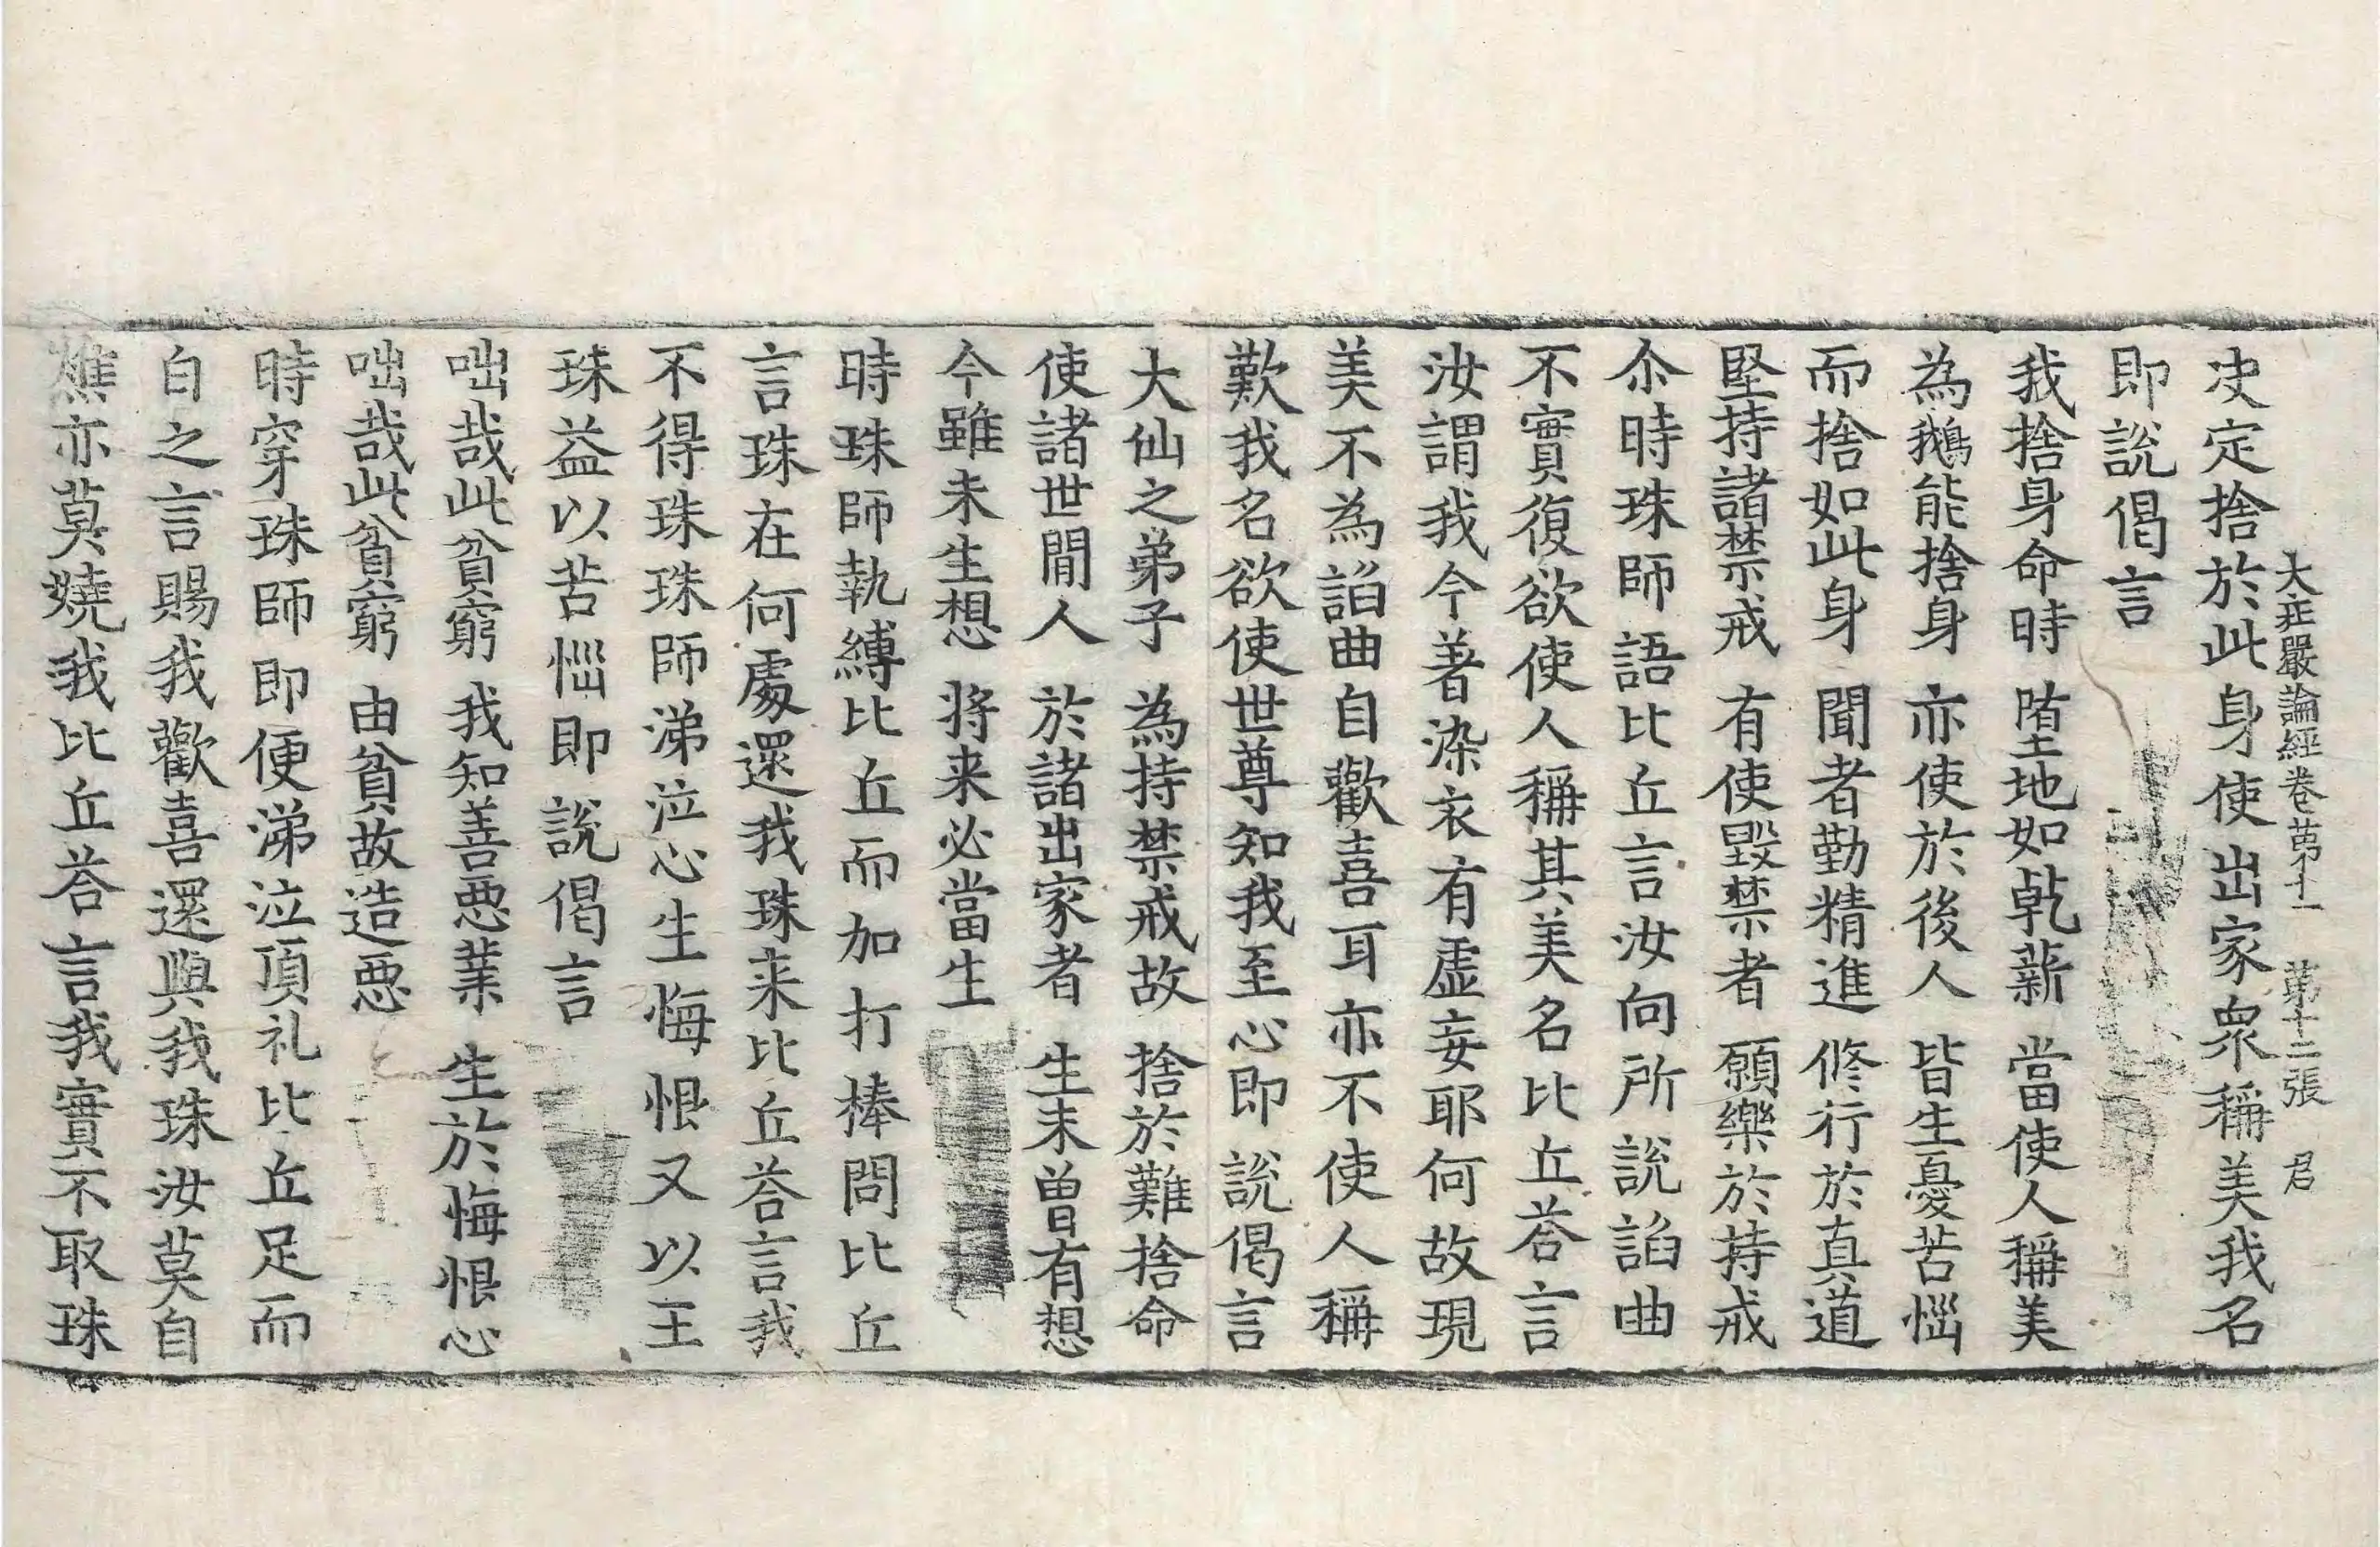 大莊嚴論經卷第十一 第十二張 君
决定捨於此身使出家衆稱美我名
即說偈言
我捨身命時 堕地如乾薪 當使人稱美
為鵝能捨身 亦使於後人 皆生憂苦惱
而捨如此身 聞者勤精進 修行於真道
堅持諸禁戒 有使毀禁者 願樂於持戒
尒時珠師語比丘言汝向所說諂曲
不實復欲使人稱其美名比丘荅言
汝謂我今著染衣有虛妄耶何故現
美不為諂曲自歡喜耳亦不使人稱
歎我名欲使世尊知我至心即說偈言
大仙之弟子 為持禁戒故 捨於難捨命
使諸世閒人 於諸出家者 生未曾有想
今雖未生想 将来必當生
時珠師執縛比丘而加打棒問比丘
言珠在何處還我珠来比丘荅言我
不得珠珠師涕泣心生悔恨又以王
珠益以苦惱即說偈言
咄哉此貧窮 我知善悪業 生於悔恨心
咄哉此貧窮 由貧故造悪
時穿珠師即便涕泣頂礼比丘足而
白之言賜我歡喜還與我珠汝莫自
燋亦莫嬈我比丘荅言我實不取珠